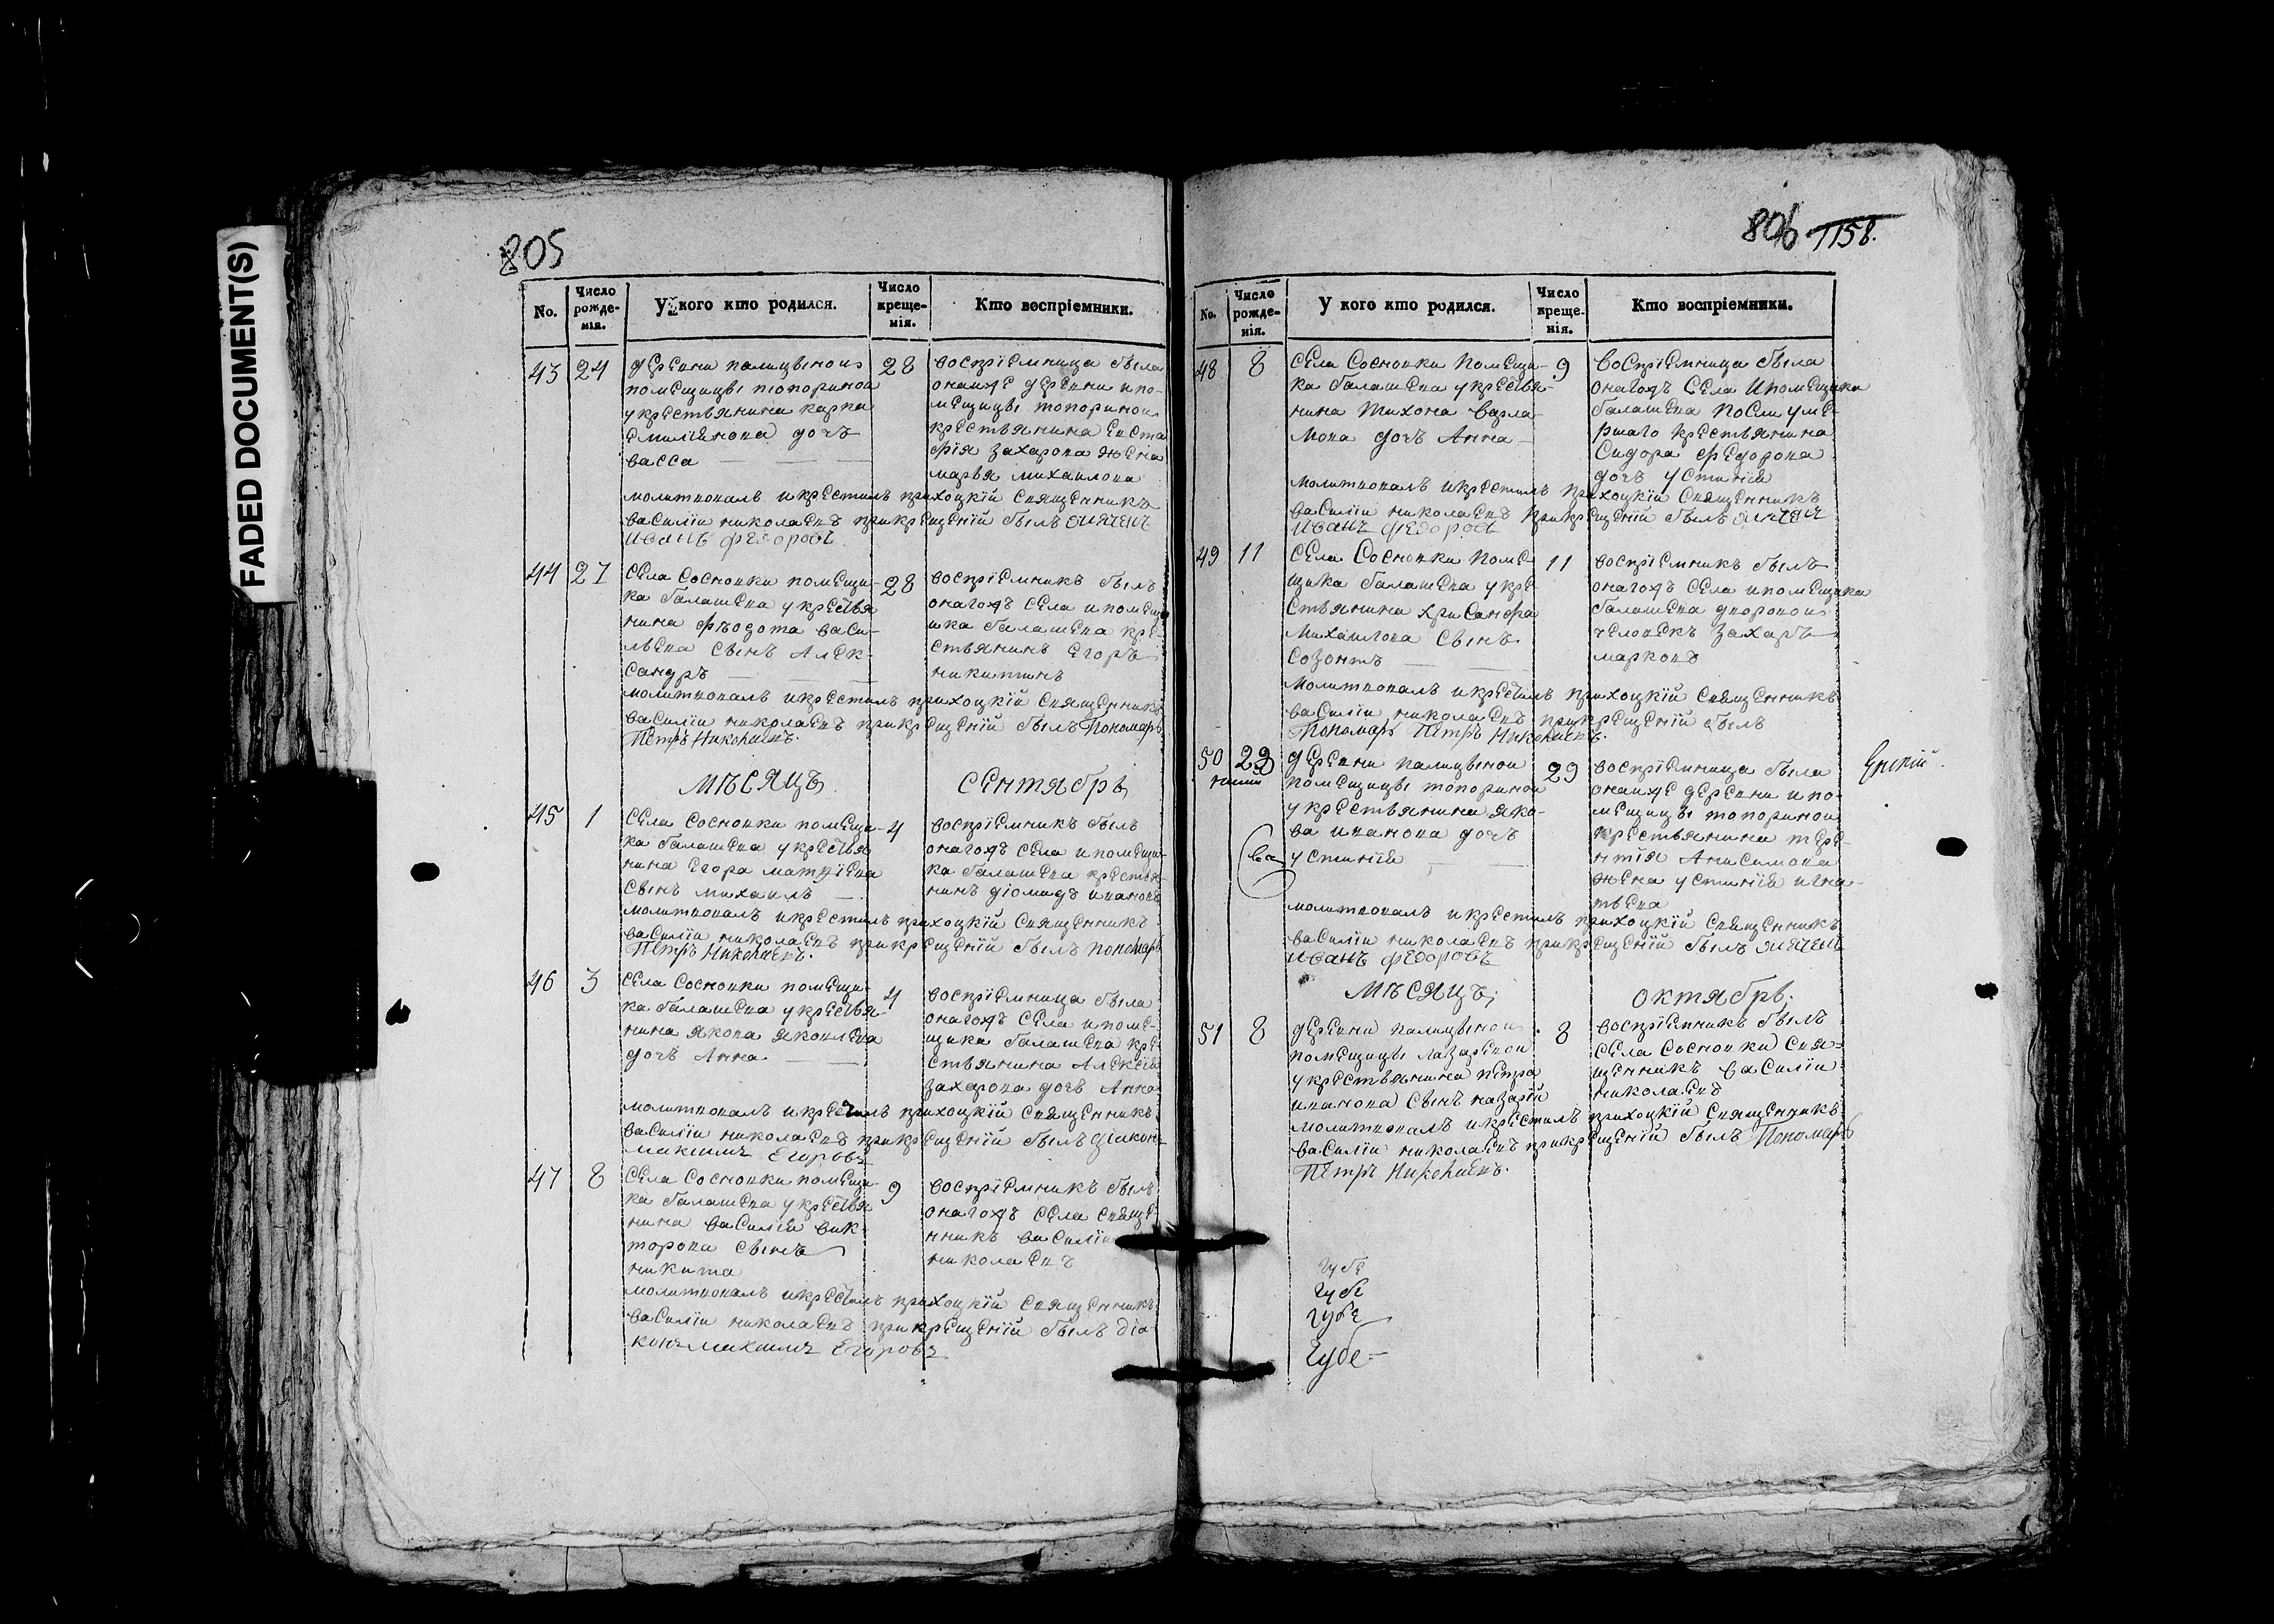 FADED DOCUMENT(S)
805
No.
Число рожде-нія.
У кого кто родился.
Число креще-нія.
Кто воспріемники.
43
24
деревни палицыной
помещицы топориной
укрестьянина карпа
Емилїянова дочь
васса
28
воспріемница была
онаиже деревни ипо-
мещицы топориной
крестьянина Евста
фїя захарова жена
марья михаилова
молитвовалъ икрестилъ прихоцкїй священникъ
василіи николаевъ прикрещенїй былъ дьячекъ
иванъ федоровъ
44
27
села Сосновки помещи-
ка балашева укрестья
нина фѣодота васи-
льева сынъ Алек-
сандръ
28
воспріемникъ былъ
онагожъ села ипомещ
ика балашева кре-
стьянинъ егоръ
никитинъ
молитвовалъ икрестилъ прихоцкїй священникъ
василіи николаевъ прикрещенїй былъ Пономарь
Петръ Николаевъ.
мѣсяцъ сентябрь
45
1
села Сосновки помещи-
ка балашева укрестья
нина егора матвїева
сынъ михаилъ
4
воспріемникъ былъ
онагожъ села ипомещи-
ка балашева крестья-
нинъ дїомидъ ивановъ
молитвовалъ икрестилъ прихоцкїй священникъ
василіи николаевъ прикрещенїй былъ пономарь
Петръ Николаевъ.
46
3
села Сосновки помещи-
ка балашева укрестья-
нина якова яковлева
дочь Анна
4
воспріемница была
онагожъ села ипоме-
щика балашева кре-
стьянина Алексїя
захарова дочь Анна
молитвовалъ икрестилъ прихоцкїй священникъ
василіи николаевъ прикрещенїй былъ дїаконъ
максимъ Егоровъ
47
8
села Сосновки помещи-
ка балашева укрестья
нина василїя вик-
торова сынъ
никита
9
воспріемникъ былъ
онагожъ села свяще-
нникъ василіи
николаевъ
молитвовалъ икрестилъ прихоцкїй священникъ
василіи николаевъ прикрещенїй былъ дїа-
конъ максимъ Егоровъ
806 1158.
No.
Число рожде-нія.
У кого кто родился.
Число креще-нія.
Кто воспріемники.
48
8
села Сосновки Помещи-
ка балашева укрестья-
нина Тихона варла-
мова дочь Анна
9
Воспріемница была
онагожъ села ипомещика
балашева после уме-
ршаго крестьянина
Сидора федорова
дочь устинїя
молитвовалъ икрестилъ прихоцкїй священникъ
василіи николаевъ прикрещенїй былъ дьячекъ
иванъ федоровъ
49
11
села Сосновки поме-
щика балашева укре
стьянина хрисанфа
михаилова сынъ
созонтъ
11
воспріемникъ былъ
онагожъ села ипомещика
балашева дворовои
человекъ захаръ
марковъ
молитвовалъ икрестилъ прихоцкїй священникъ
василіи николаевъ прикрещенїй былъ
Пономарь Петръ Николаевъ.
50
29
деревни палицыной
помещицы топориной
укрестьянина яко-
ва иванова дочь
устинїя
29
воспріемница была
онаиже деревни ипо-
мещицы топориной
крестьянина тере-
нтїя Анисимова
жена устинїя игна-
тьева
молитвовалъ икрестилъ прихоцкїй священникъ
василіи николаевъ прикрещенїй былъ дьячекъ
иванъ федоровъ
мѣсяцъ; октябрь;
51
8
деревни палицыной
помещицы лазаревой
укрестьянина петра
иванова сынъ назарїй
8
воспріемникъ былъ
села Сосновки свя-
щенникъ василіи
николаевъ
молитвовалъ икрестилъ прихоцкїй священникъ
василіи николаевъ прикрещенїй былъ Пономарь
Петръ Николаевъ.
губе
губе
губе
губе